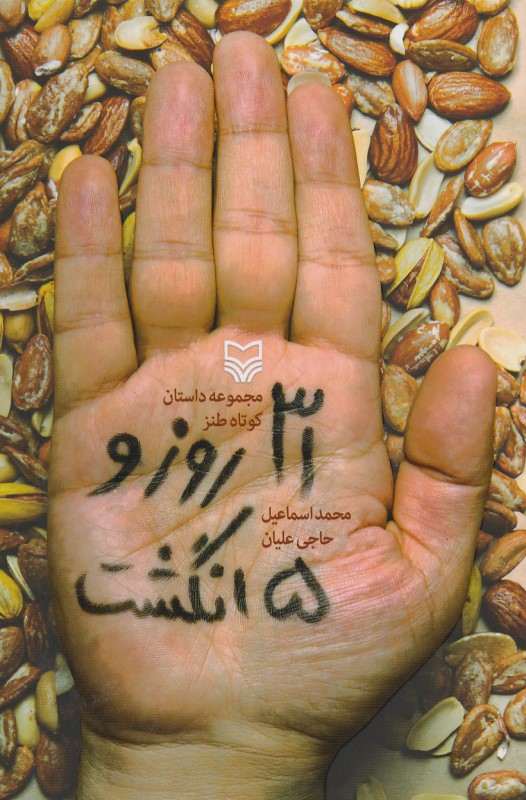 مجموعه داستان
کوتاه طنز
۳۱ روز و
محمداسماعیل
حاجی علیان
۵ انگشت